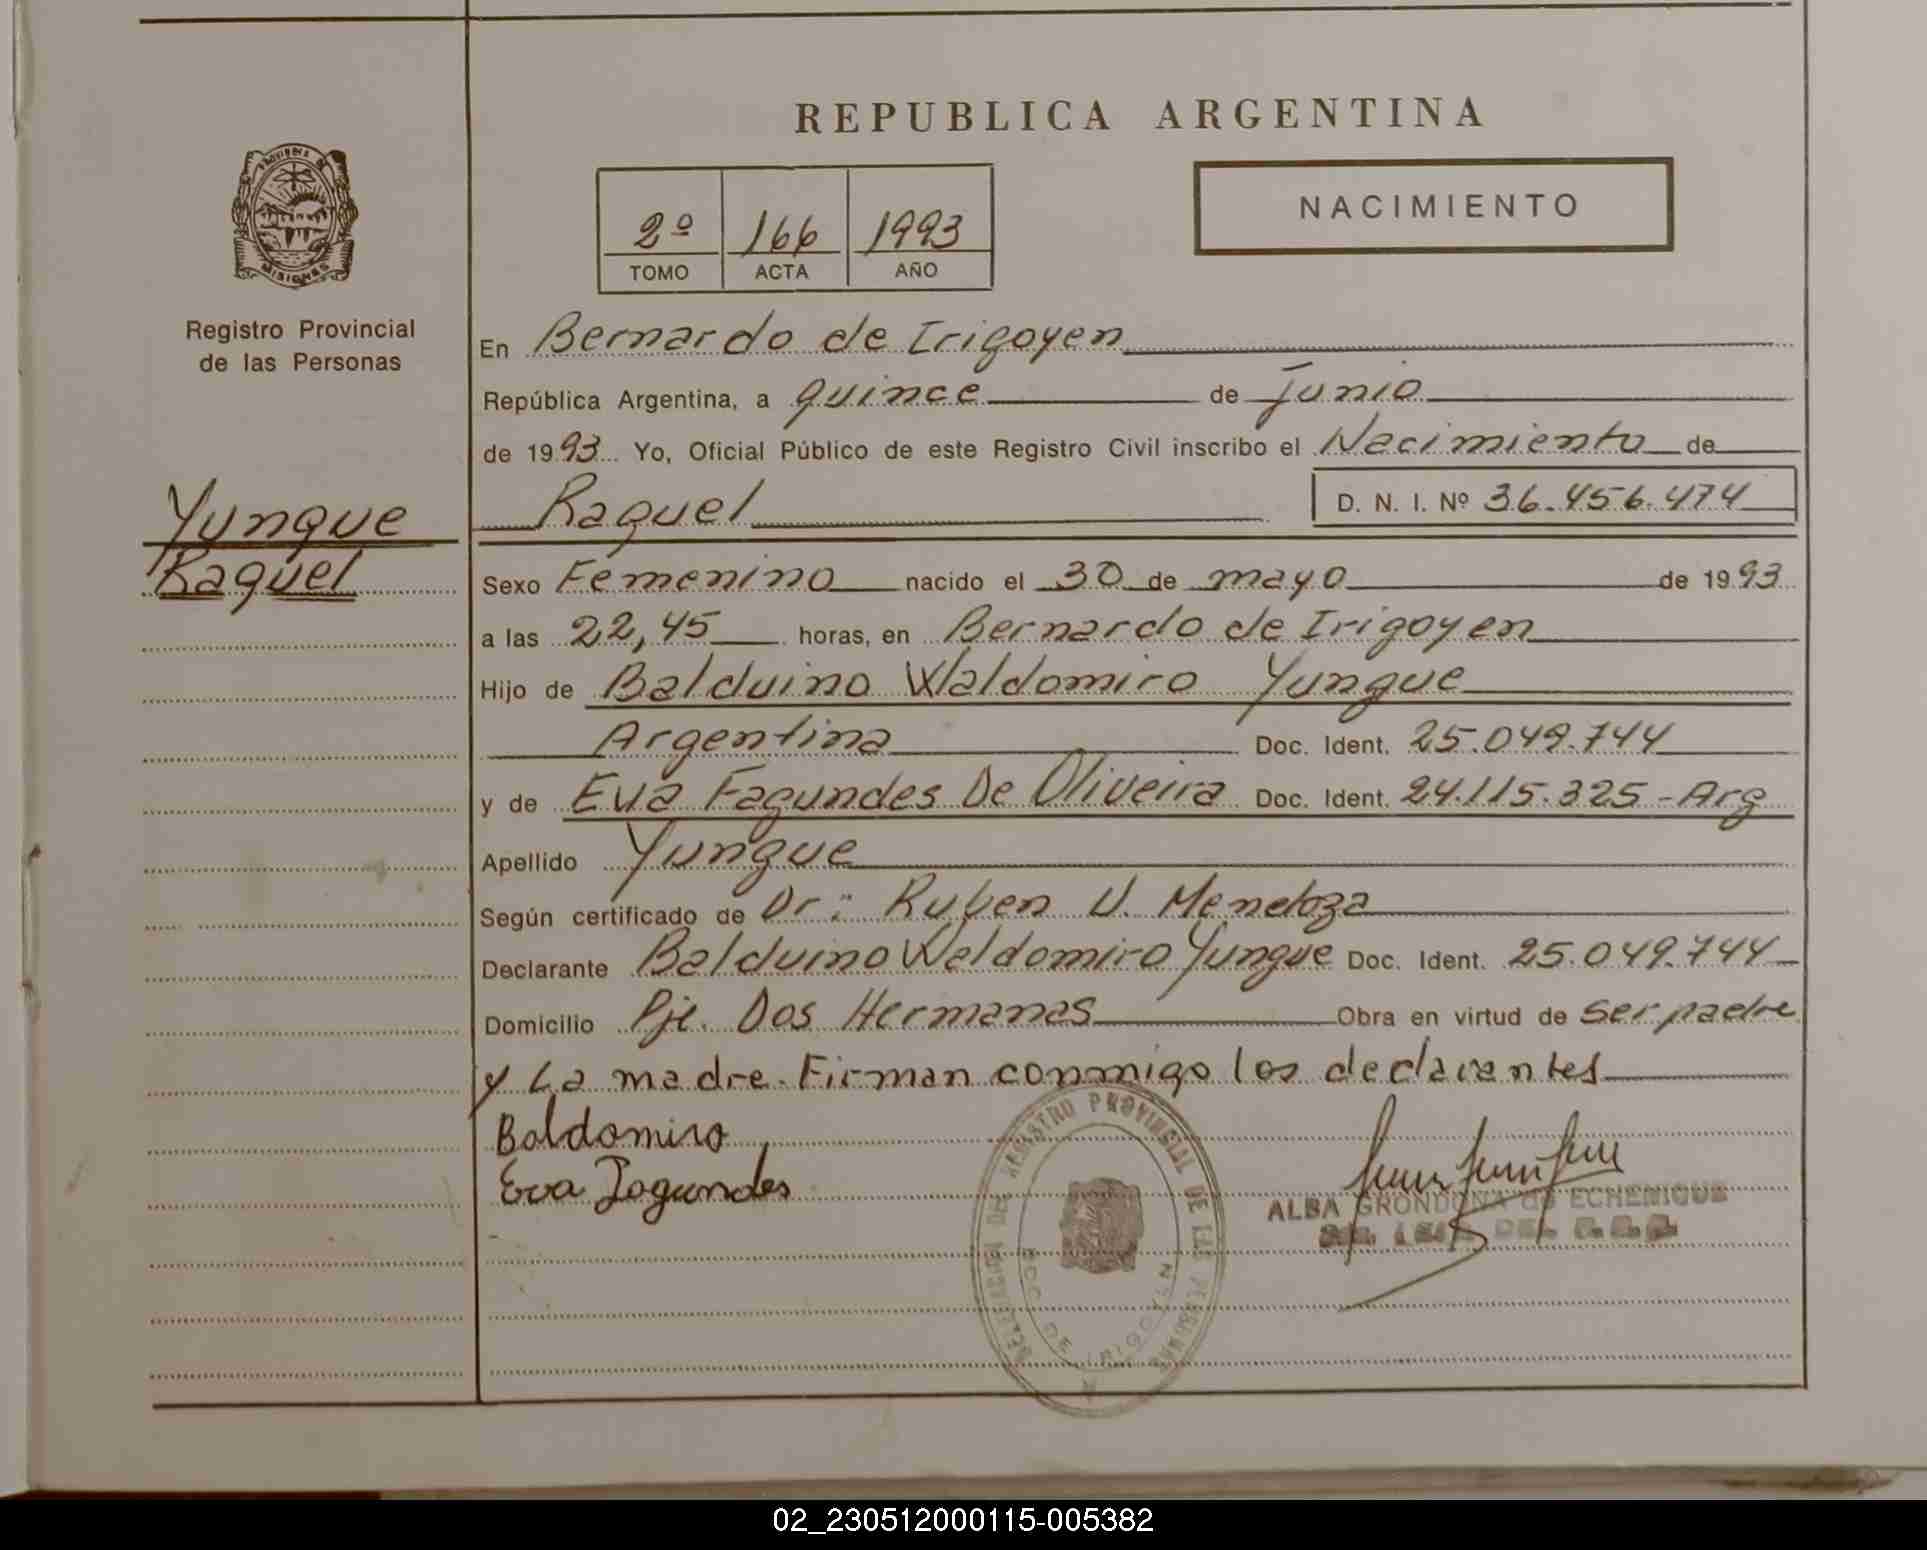 REPUBLICA ARGENTINA
PROVINCIA DE
MISIONES
2º 166 1993
TOMO ACTA AÑO
NACIMIENTO
Registro Provincial
de las Personas
Yunque
Raquel
En Bernardo de Irigoyen
República Argentina, a quince de Junio
de 1993 Yo, Oficial Público de este Registro Civil inscribo el Nacimiento de
Raquel D. N. I. Nº 36.456.474
Sexo Femenino nacido el 30 de mayo de 1993
a las 22,45 horas, en Bernardo de Irigoyen
Hijo de Balduino Waldomiro Yunque
Argentina Doc. Ident. 25.049.744
y de Eva Fagundes De Oliveira Doc. Ident. 24.115.325 - Arg
Apellido Yunque
Según certificado de Dr: Ruben U. Mendoza
Declarante Balduino Waldomiro Yunque Doc. Ident. 25.049.744
Domicilio Pje. Dos Hermanas Obra en virtud de ser padre
y La madre. Firman conmigo los declarantes
Baldomiro
Eva Fagundes
DELEGACION DEL REGISTRO PROVINCIAL DE LAS PERSONAS
BDO. DE IRIGOYEN
ALBA GRONDONA de ECHENIQUE
02_230512000115-005382